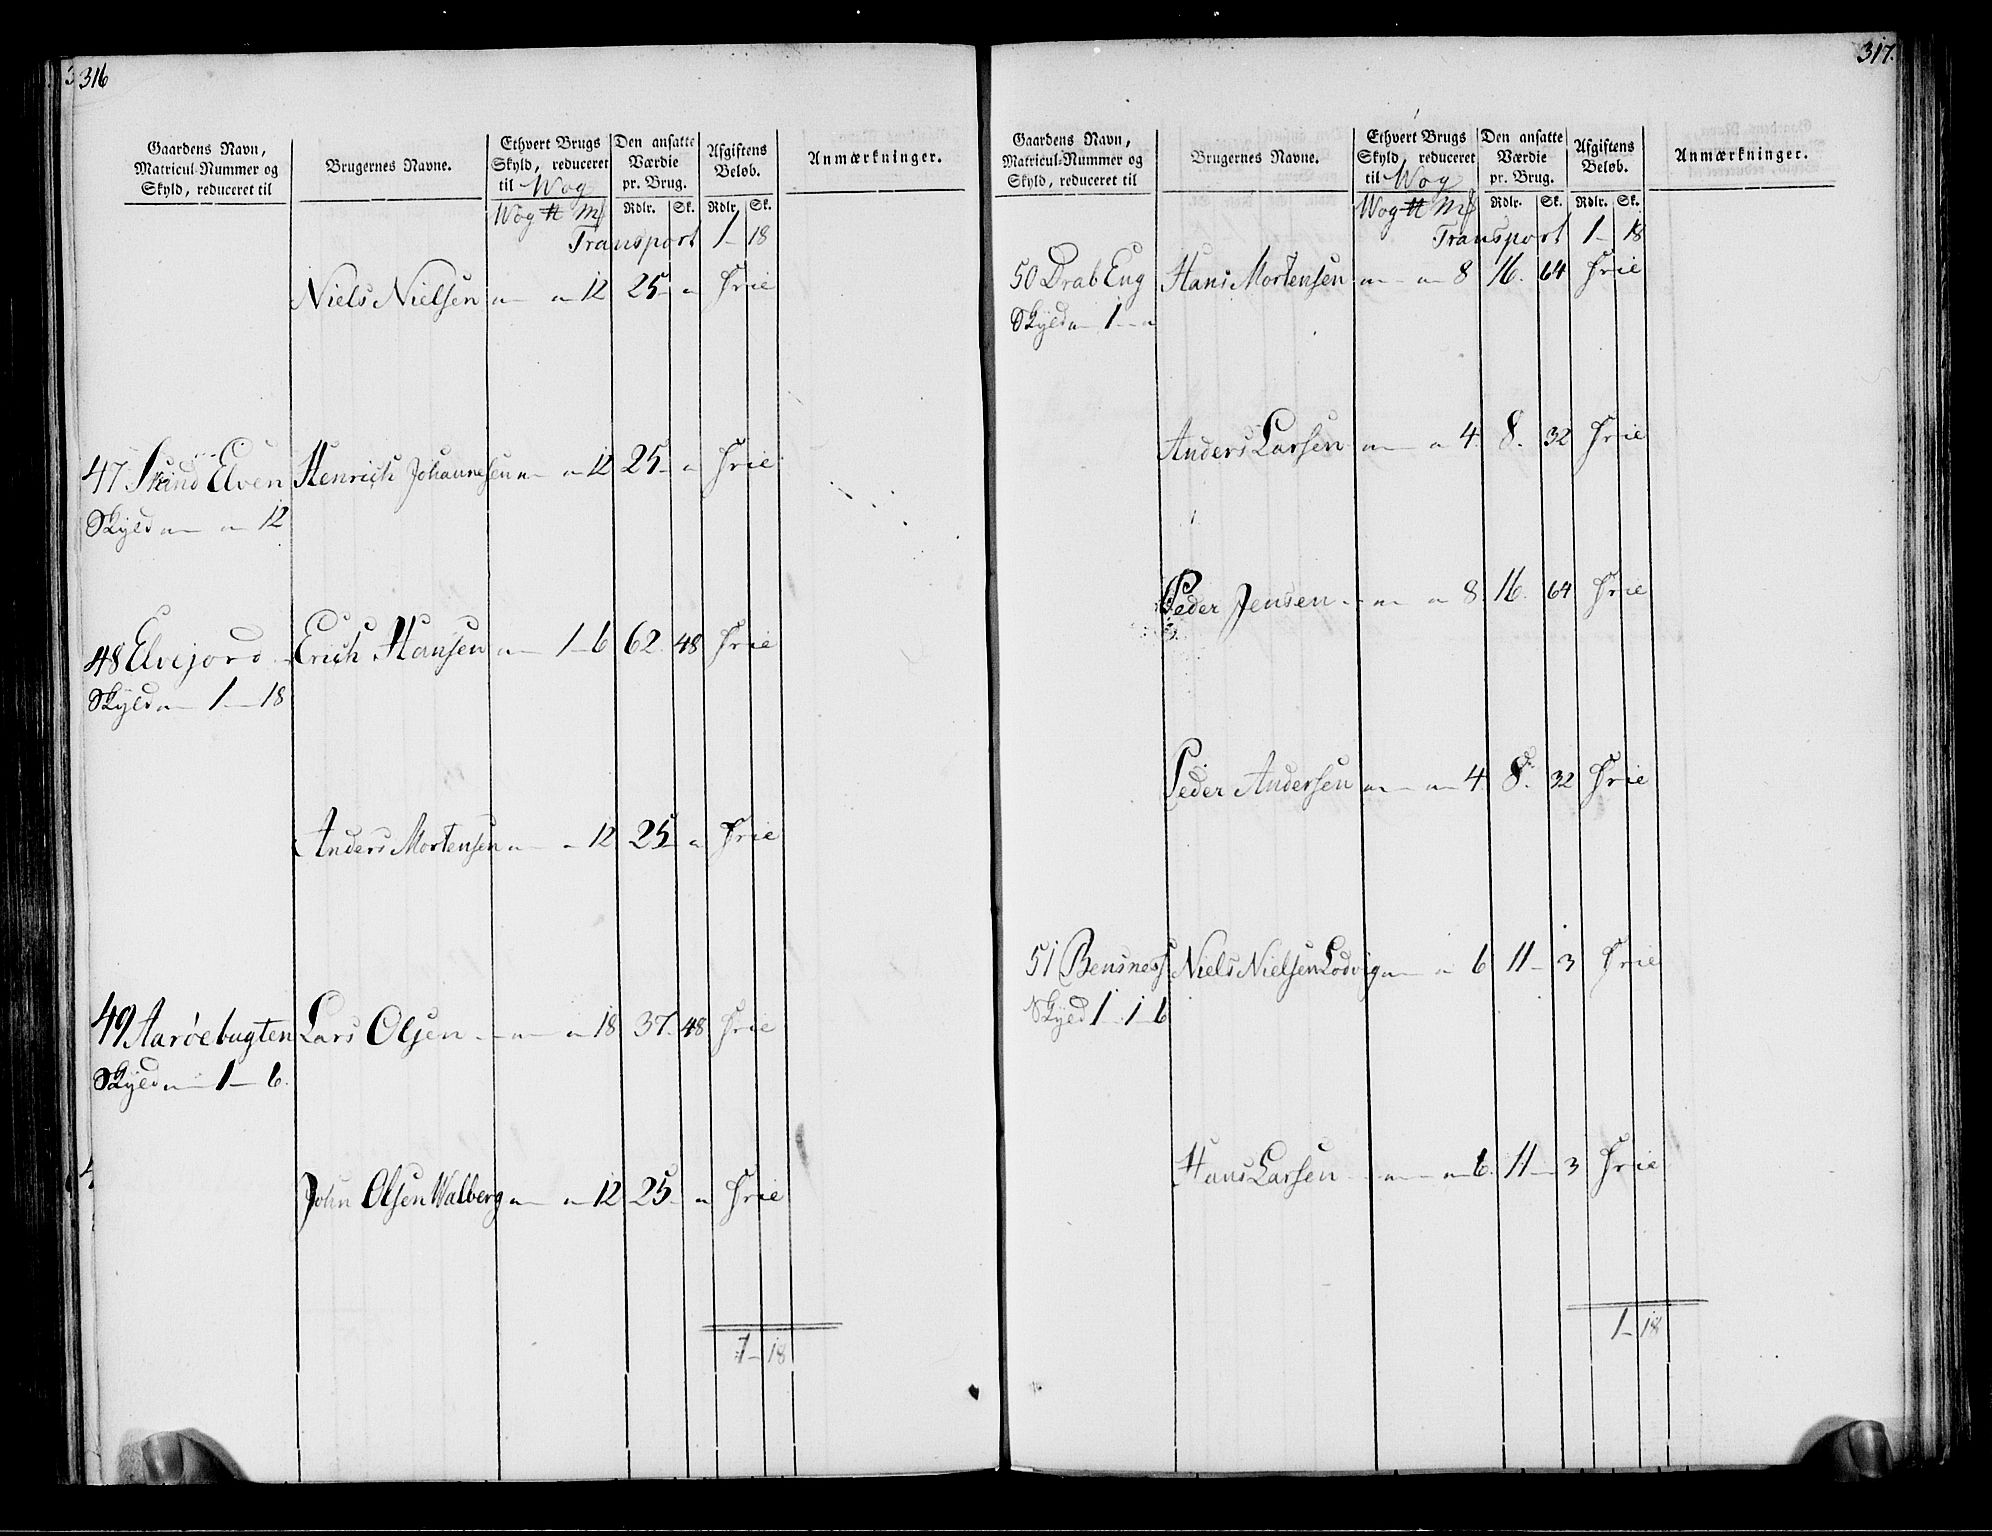 316
Gaardens Navn, Matricul-Nummer og Skyld, reduceret til | Brugernes Navne. | Ethvert Brugs Skyld, reduceret til Wog | Den ansatte Værdie pr. Brug. | Afgiftens Beløb. | Anmærkninger.
Wog ℔ M⸗ | Rdlr. | Sk. | Rdlr. | Sk.
Transport 1 – 18
Niels Nielsen " – " – 12 25 – " Frie
47 Skind Elven Henrich Johannesen " – " – 12 25 – " Frie
Skyld " – " – 12
48 Elvejord Erich Hansen " – 1 – 6 62. 48 Frie
Skyld " – 1 – 18
Anders Mortensen " – " – 12 25 – " Frie
49 Aarøebugten Lars Olsen " – " – 18 37. 48 Frie
Skyld " – 1 – 6.
John Olsen Walberg " – " – 12 25 – " Frie
1 – 18
317.
Gaardens Navn, Matricul-Nummer og Skyld, reduceret til | Brugernes Navne. | Ethvert Brugs Skyld, reduceret til Wog | Den ansatte Værdie pr. Brug. | Afgiftens Beløb. | Anmærkninger.
Wog ℔ M⸗ | Rdlr. | Sk. | Rdlr. | Sk.
Transport 1 – 18
50 Drab Eng Hans Mortensen " – " – 8 16. 64 Frie
Skyld " – 1 – "
Anders Larsen " – " – 4. 8. 32 Frie
Peder Jensen " – " – 8. 16. 64 Frie
Peder Andersen " – " – 4. 8. 32 Frie
51 Bensness Niels Nielsen Lodvig " – " – 6 11 – 3 Frie
Skyld 1 – 1 – 6
Hans Larsen " – " – 6. 11 – 3 Frie
1 – 18